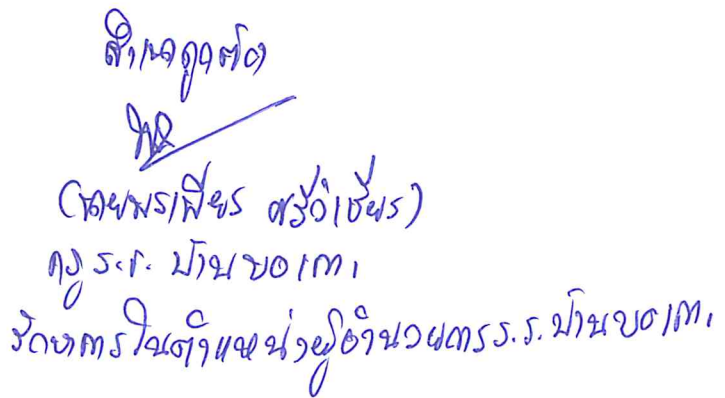 สำเนาถูกต้อง
(นายพรเพียร ศรีวิเชียร)
ครู ร.ร. บ้านบอเกา
รักษาการในตำแหน่งผู้อำนวยการ ร.ร. บ้านบอเกา